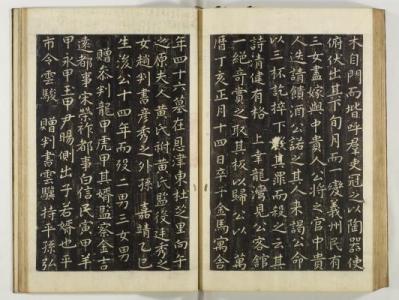 木自門而階呼羣吏冠之以陶器使
俯伏出其下旬月而一變義州民有
三女盡嫁與中貴人公將之官中貴
人迭請餽酒公諾之其人來謁公命
以三杯訖梓下數其罪而杖之云其
詩清健有格 上幸龍灣見公客館
一絶奇賞之取其板以歸公以 萬
曆丁亥正月十四日卒于金馬寓舍
年四十六墓在恩津東杜芝里向午
之原夫人黄氏祔黄氏縣後達秀之
女趙判書彦秀之外孫 嘉靖乙巳
生後公十四年而歿二男三女男
贈叅判龍甲虎甲其婿監察金吉
遠都事宋榮祚都事白信民寅甲羊
甲永甲玉甲尹暘側出子若婿也平
市令雲駿 贈判書雲騏持平孫弘